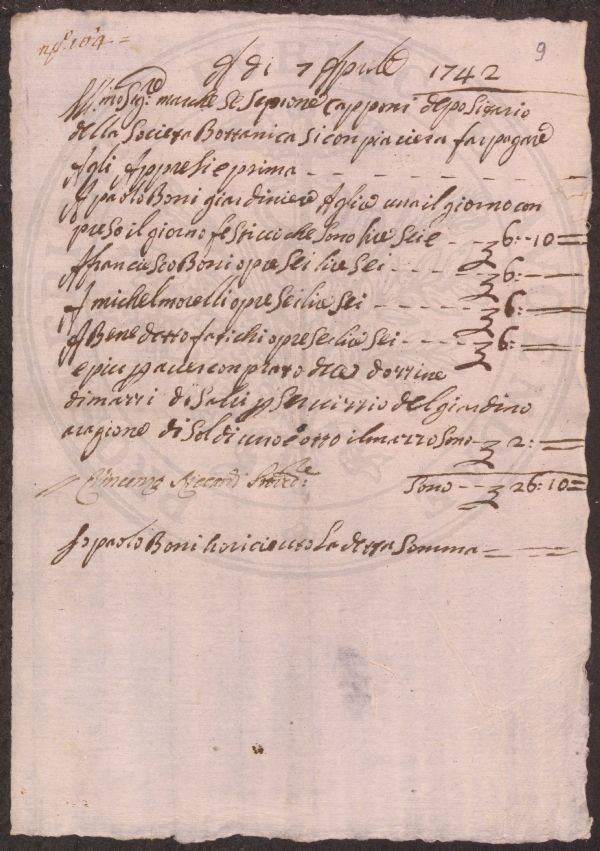 n.° 104 =
9
A di 7 Aprile 1742
Ill.mo Sig.re marchese Sepione Capponi depositario
della Societa Bottanica si conpiaciera far pagare
Agli Appresi e prima
A paolo Boni giardiniere Aglie una il giorno con
preso il giorno festivo che sono lire sei e 6: 10
A francesco Boni opre sei lire sei 6:
A michel morelli opre sei lire sei 6:
A Benedetto fatichi opre sei lire sei 6:
e piu p aver conprato due dozzine
di mazzi di Salci p servizzio del giardino
a ragione di soldi uno e otto il mazzo sono 2:
Sono 26: 10
Io paolo Boni ho riceuto la detta somma